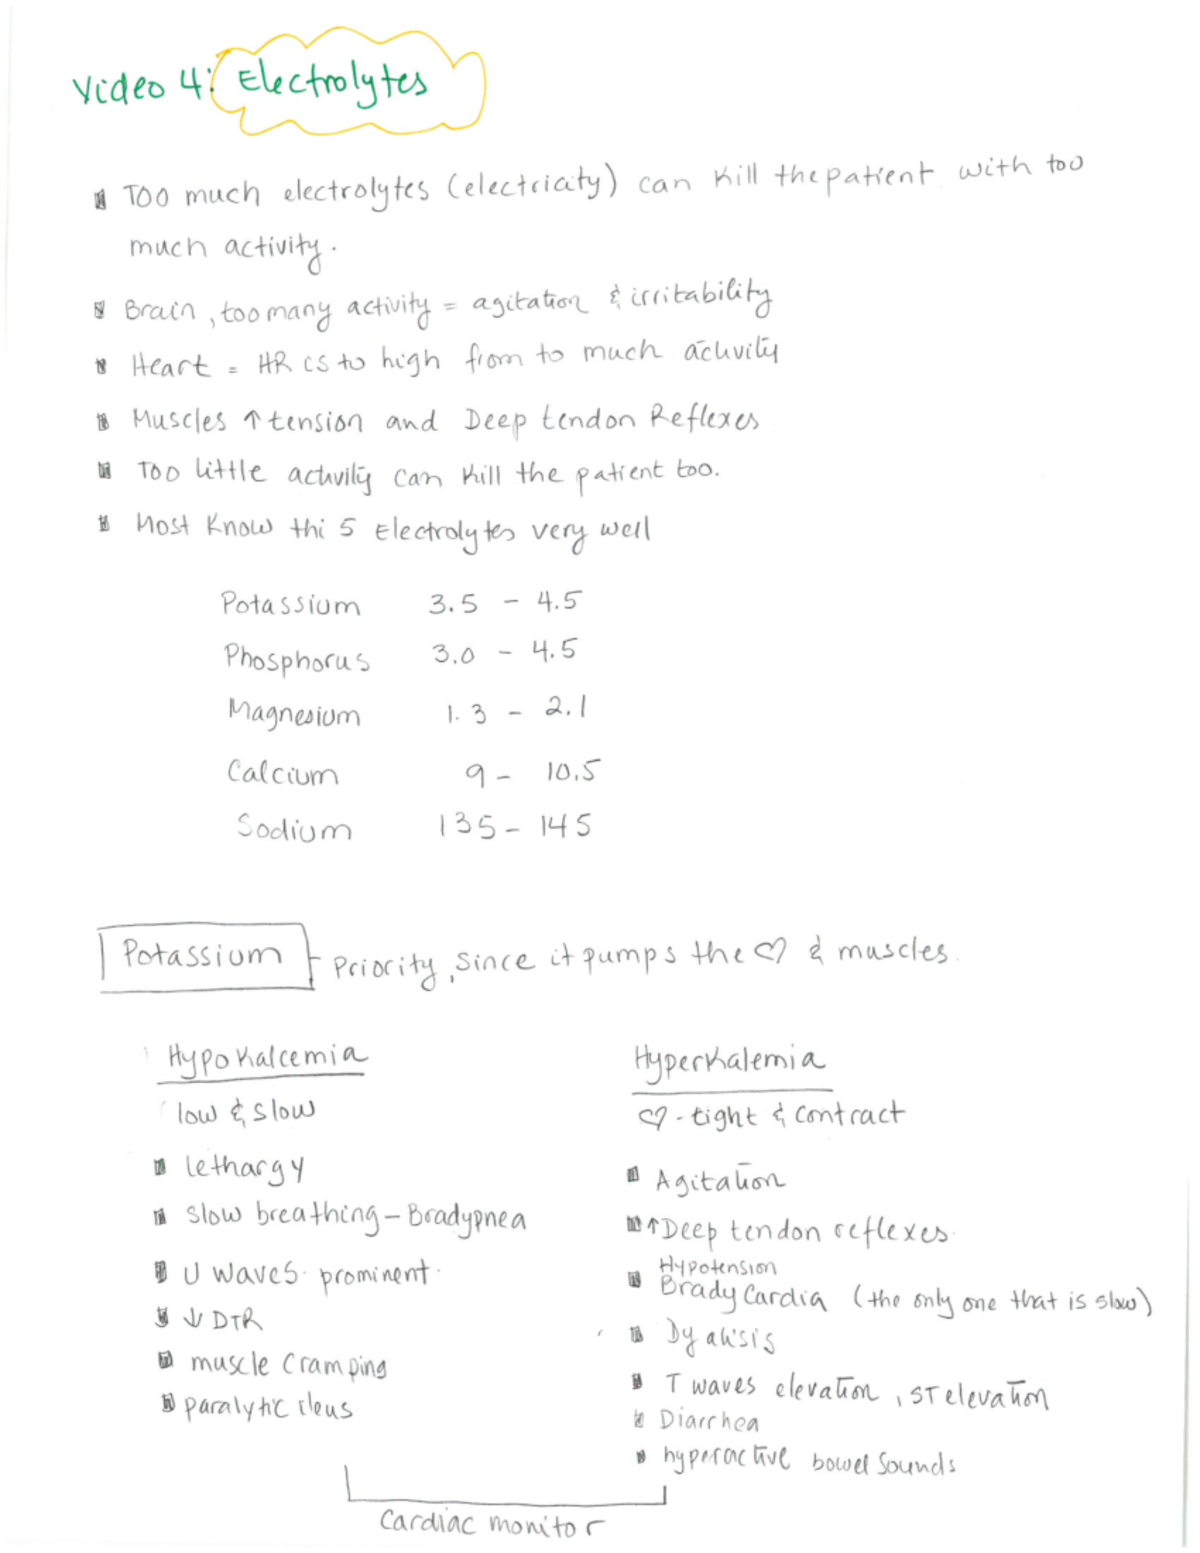 Video 4: Electrolytes
Too much electrolytes (electricity) can kill the patient with too
much activity.
Brain, too many activity = agitation & irritability
Heart = HR is to high from to much activity
Muscles ↑ tension and Deep tendon Reflexes
Too little activity can kill the patient too.
Most Know thi 5 Electrolytes very well
Potassium 3.5 - 4.5
Phosphorus 3.0 - 4.5
Magnesium 1.3 - 2.1
Calcium 9 - 10.5
Sodium 135 - 145
Potassium - Priority, since it pumps the ♡ & muscles.
Hypokalcemia
low & slow
lethargy
slow breathing - Bradypnea
U waves prominent.
↓ DTR
muscle cramping
paralytic ileus
Hyperkalemia
♡ - tight & contract
Agitation
↑ Deep tendon reflexes.
Hypotension
Brady Cardia (the only one that is slow)
Dyalisis
T waves elevation, ST elevation
Diarrhea
hyperactive bowel sounds
Cardiac monitor